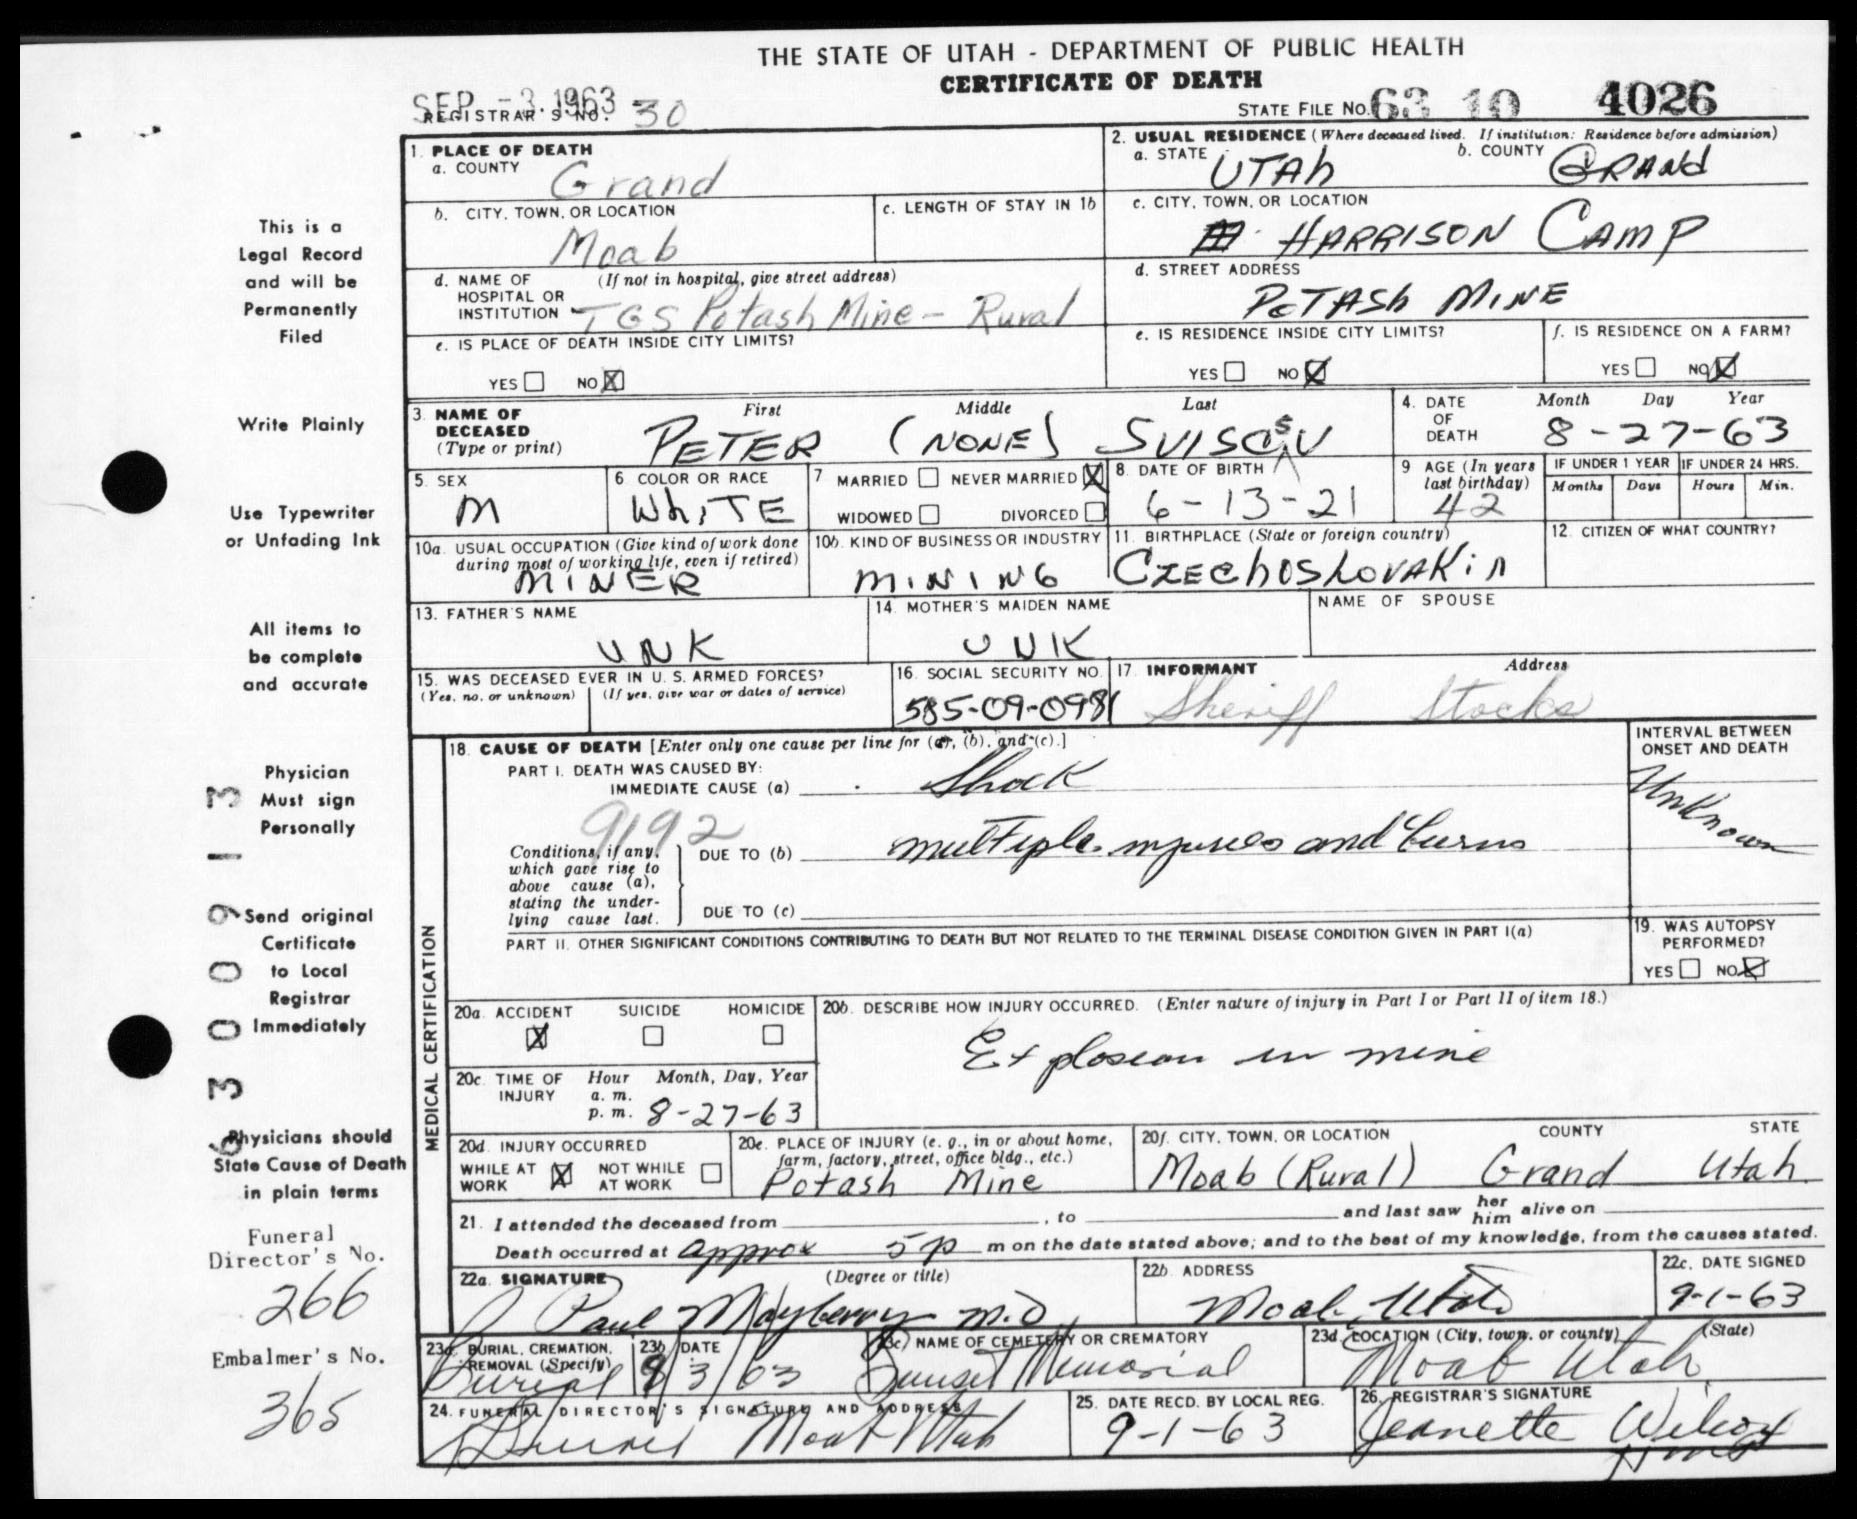 THE STATE OF UTAH - DEPARTMENT OF PUBLIC HEALTH
CERTIFICATE OF DEATH
SEP -3 1963
REGISTRAR'S NO. 30
STATE FILE NO. 63 10 4026
1. PLACE OF DEATH
a. COUNTY Grand
2. USUAL RESIDENCE (Where deceased lived. If institution: Residence before admission)
a. STATE UTAH b. COUNTY GRAND
b. CITY, TOWN, OR LOCATION Moab
c. LENGTH OF STAY IN 1b
c. CITY, TOWN, OR LOCATION HARRISON CAMP
d. NAME OF HOSPITAL OR INSTITUTION (If not in hospital, give street address) TGS Potash Mine - Rural
d. STREET ADDRESS POTASH MINE
e. IS PLACE OF DEATH INSIDE CITY LIMITS?
YES NO X
e. IS RESIDENCE INSIDE CITY LIMITS?
YES NO X
f. IS RESIDENCE ON A FARM?
YES NO X
3. NAME OF DECEASED (Type or print)
First Middle Last
PETER (NONE)
4. DATE OF DEATH Month Day Year
8-27-63
5. SEX M
6. COLOR OR RACE WHITE
7. MARRIED NEVER MARRIED X
WIDOWED DIVORCED
8. DATE OF BIRTH 6-13-21
9. AGE (In years last birthday) 42
IF UNDER 1 YEAR Months Days
IF UNDER 24 HRS. Hours Min.
10a. USUAL OCCUPATION (Give kind of work done during most of working life, even if retired) MINER
10b. KIND OF BUSINESS OR INDUSTRY MINING
11. BIRTHPLACE (State or foreign country) CZECHOSLOVAKIA
12. CITIZEN OF WHAT COUNTRY?
13. FATHER'S NAME UNK
14. MOTHER'S MAIDEN NAME UNK
NAME OF SPOUSE
15. WAS DECEASED EVER IN U. S. ARMED FORCES?
(Yes, no, or unknown) (If yes, give war or dates of service)
16. SOCIAL SECURITY NO. 585-09-0981
17. INFORMANT Address
Sheriff Stocks
18. CAUSE OF DEATH [Enter only one cause per line for (a), (b), and (c).]
INTERVAL BETWEEN ONSET AND DEATH
Unknown
PART I. DEATH WAS CAUSED BY:
IMMEDIATE CAUSE (a) Shock
9192
Conditions, if any, which gave rise to above cause (a), stating the underlying cause last.
DUE TO (b) multiple injuries and burns
DUE TO (c)
PART II. OTHER SIGNIFICANT CONDITIONS CONTRIBUTING TO DEATH BUT NOT RELATED TO THE TERMINAL DISEASE CONDITION GIVEN IN PART I(a)
19. WAS AUTOPSY PERFORMED?
YES NO X
MEDICAL CERTIFICATION
20a. ACCIDENT SUICIDE HOMICIDE
X
20b. DESCRIBE HOW INJURY OCCURRED. (Enter nature of injury in Part I or Part II of item 18.)
Explosion in mine
20c. TIME OF INJURY Hour Month, Day, Year
a. m.
p. m. 8-27-63
20d. INJURY OCCURRED
WHILE AT WORK X NOT WHILE AT WORK
20e. PLACE OF INJURY (e. g., in or about home, farm, factory, street, office bldg., etc.)
Potash Mine
20f. CITY, TOWN, OR LOCATION COUNTY STATE
Moab (Rural) Grand Utah
21. I attended the deceased from , to and last saw her him alive on
Death occurred at approx 5 p m on the date stated above; and to the best of my knowledge, from the causes stated.
22a. SIGNATURE (Degree or title)
Paul Mayberry M.D.
22b. ADDRESS
Moab, Utah
22c. DATE SIGNED
9-1-63
23a. BURIAL, CREMATION, REMOVAL (Specify) Burial
23b. DATE 9/3/63
23c. NAME OF CEMETERY OR CREMATORY
Sunset Memorial
23d. LOCATION (City, town, or county) (State)
Moab Utah
24. FUNERAL DIRECTOR'S SIGNATURE AND ADDRESS
Moab Utah
25. DATE RECD. BY LOCAL REG.
9-1-63
26. REGISTRAR'S SIGNATURE
Jeanette Wilcox
This is a
Legal Record
and will be
Permanently
Filed
Write Plainly
Use Typewriter
or Unfading Ink
All items to
be complete
and accurate
Physician
Must sign
Personally
Send original
Certificate
to Local
Registrar
Immediately
Physicians should
State Cause of Death
in plain terms
Funeral
Director's No.
266
Embalmer's No.
365